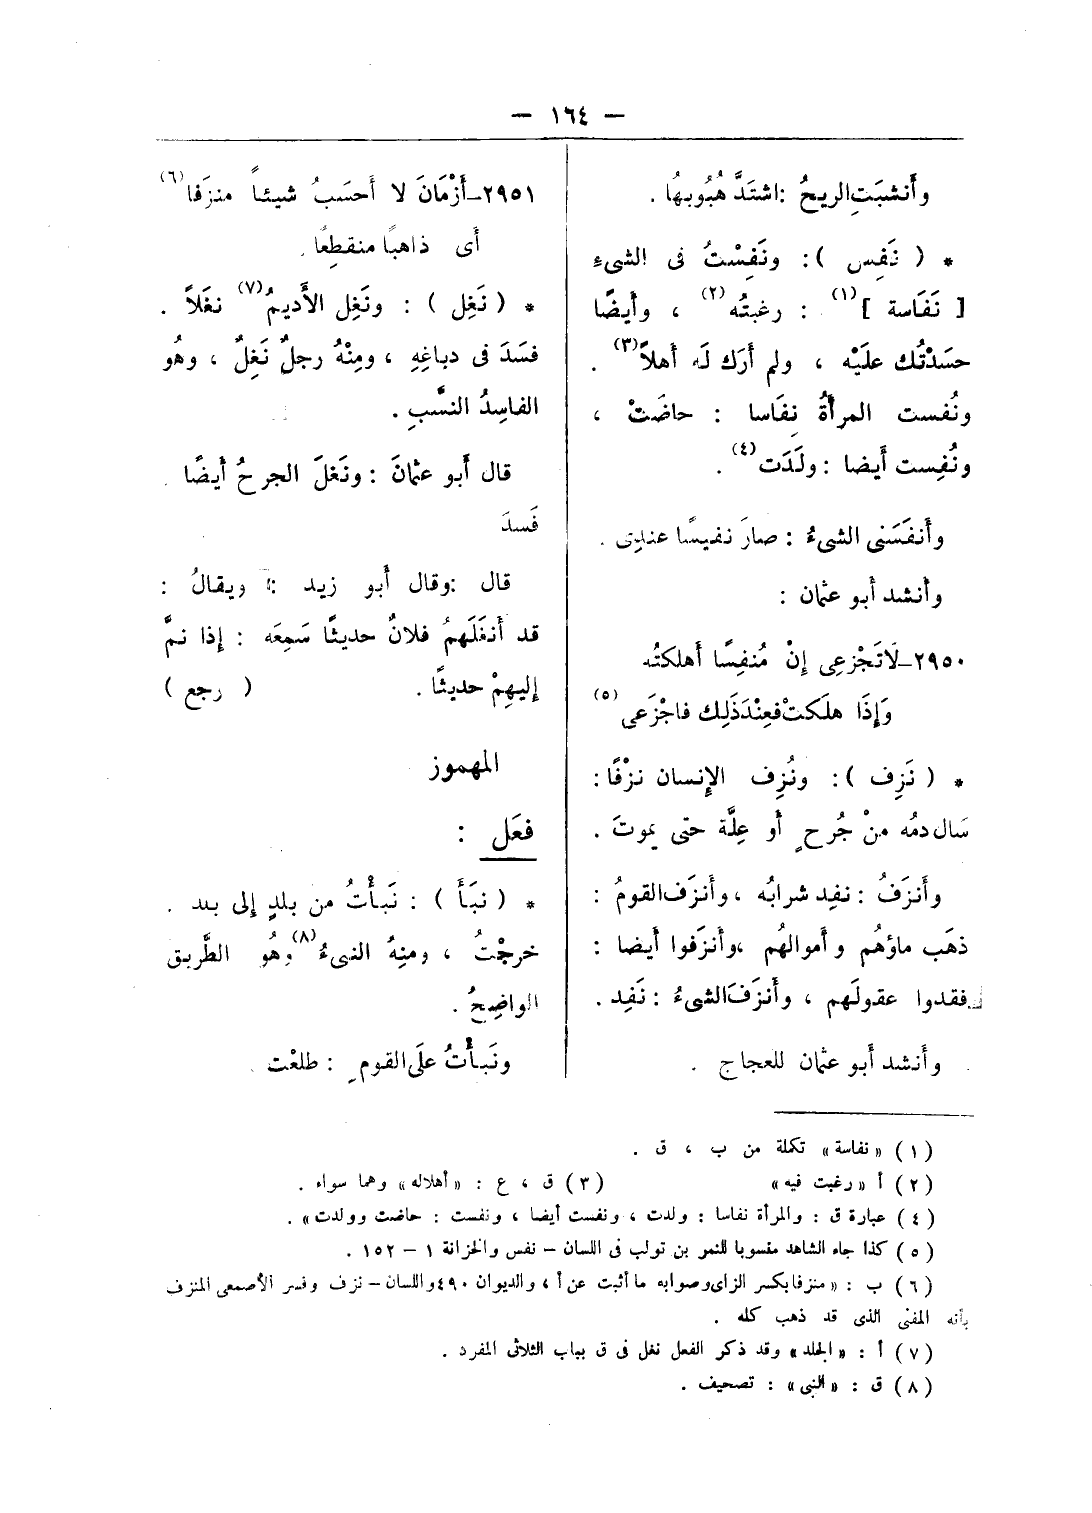 — ١٦٤ —
وأَنشَبَتِ الريحُ : اشتَدَّ هُبُوبهُا .
* ( نَفِس ) : ونَفِسْتُ فى الشىءِ
[ نَفَاسة ] (١) : رغبتُه (٢) ، وأَيضًا
حسَدْتُك علَيْه ، ولم أَرَك لَه أَهلاً (٣) .
ونُفست المرأةُ نِفَاسا : حاضَتْ ،
ونُفِست أَيضا : ولَدَت (٤) .
وأَنفَسَنى الشىءُ : صارَ نفيسًا عندِى .
وأنشد أَبو عثمان :
٢٩٥٠ـ لَاتَجْزعِى إِنْ مُنفِسًا أَهلكتُه
وَإِذَا هلَكتُ فعِنْدَ ذَلِك فاجْزَعى (٥)
* ( نَزِف ) : ونُزِف الإِنسان نزْفًا :
سَال دمُه منْ جُرحٍ أَو عِلَّة حتى يموتَ .
وأَنزَفُ : نفِد شرابُه ، وأَنزَف القومُ :
ذهَب ماؤهُم و أَموالهُم ، وأَنزَفوا أَيضا :
فقدوا عقولَهم ، وأَنزَفَ الشىءُ : نَفِد .
وأَنشد أَبو عثمان للعجاج .
٢٩٥١ـ أَزْمَانَ لا أَحسَبُ شيئاً منزَفا (٦)
أَى ذاهبًا منقطِعًا .
* ( نَغِل ) : ونَغِل الأَديمُ (٧) نغَلاً .
فسَدَ فى دباغِهِ ، ومِنْهُ رجلٌ نَغِلٌ ، وهُو
الفاسِدُ النسَّبِ .
قال أَبو عثمانَ : ونَغلَ الجرحُ أَيضًا .
فَسدَ
قال : وقال أَبو زيد : ويقالُ :
قد أَنغَلَهمُ فلانٌ حديثًا سَمِعَه : إِذا نمَّ
إِليهِمْ حديثًا . ( رجع )
المهموز
فعَل :
* ( نبَأَ ) : نَبأْتُ من بلدٍ إِلى بلد .
خرجْتُ ، ومنِهُ النبىءُ (٨) وهُو الطَّريق
الواضِحُ .
ونَبأْتُ علَى القومِ : طلعْت .
(١) «نفاسة» تكملة من ب ، ق .
(٢) أ «رغبت فيه» (٣) ق ، ع : «أهلاله» وهما سواء .
(٤) عبارة ق : والمرأة نفاسا : ولدت ، ونفست أيضا ، ونفست : حاضت وولدت» .
(٥) كذا جاء الشاهد منسوبا للنمر بن تولب فى اللسان – نفس والخزانة ١ – ١٥٢ .
(٦) ب : «منزفا بكسر الزاى وصوابه ما أثبت عن أ ، والديوان ٤٩٠ واللسان – نزف وفسر الأصمعى المنزف
بأنه المفنى الذى قد ذهب كله .
(٧) أ : «الجلد» وقد ذكر الفعل نغل فى ق بباب الثلاثى المفرد .
(٨) ق : «النبى» : تصحيف .